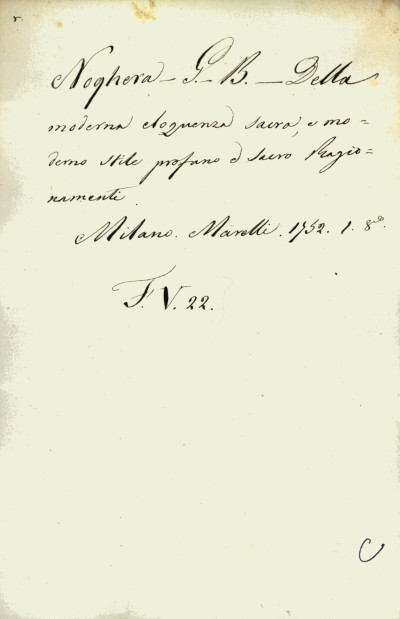 r.
Noghera – G. B. – Della
moderna eloquenza sacra, e mo=
derno stile profano e sacro Ragio=
namenti.
Milano. Marelli. 1752. 1. 8°.
F. V. 22.
C